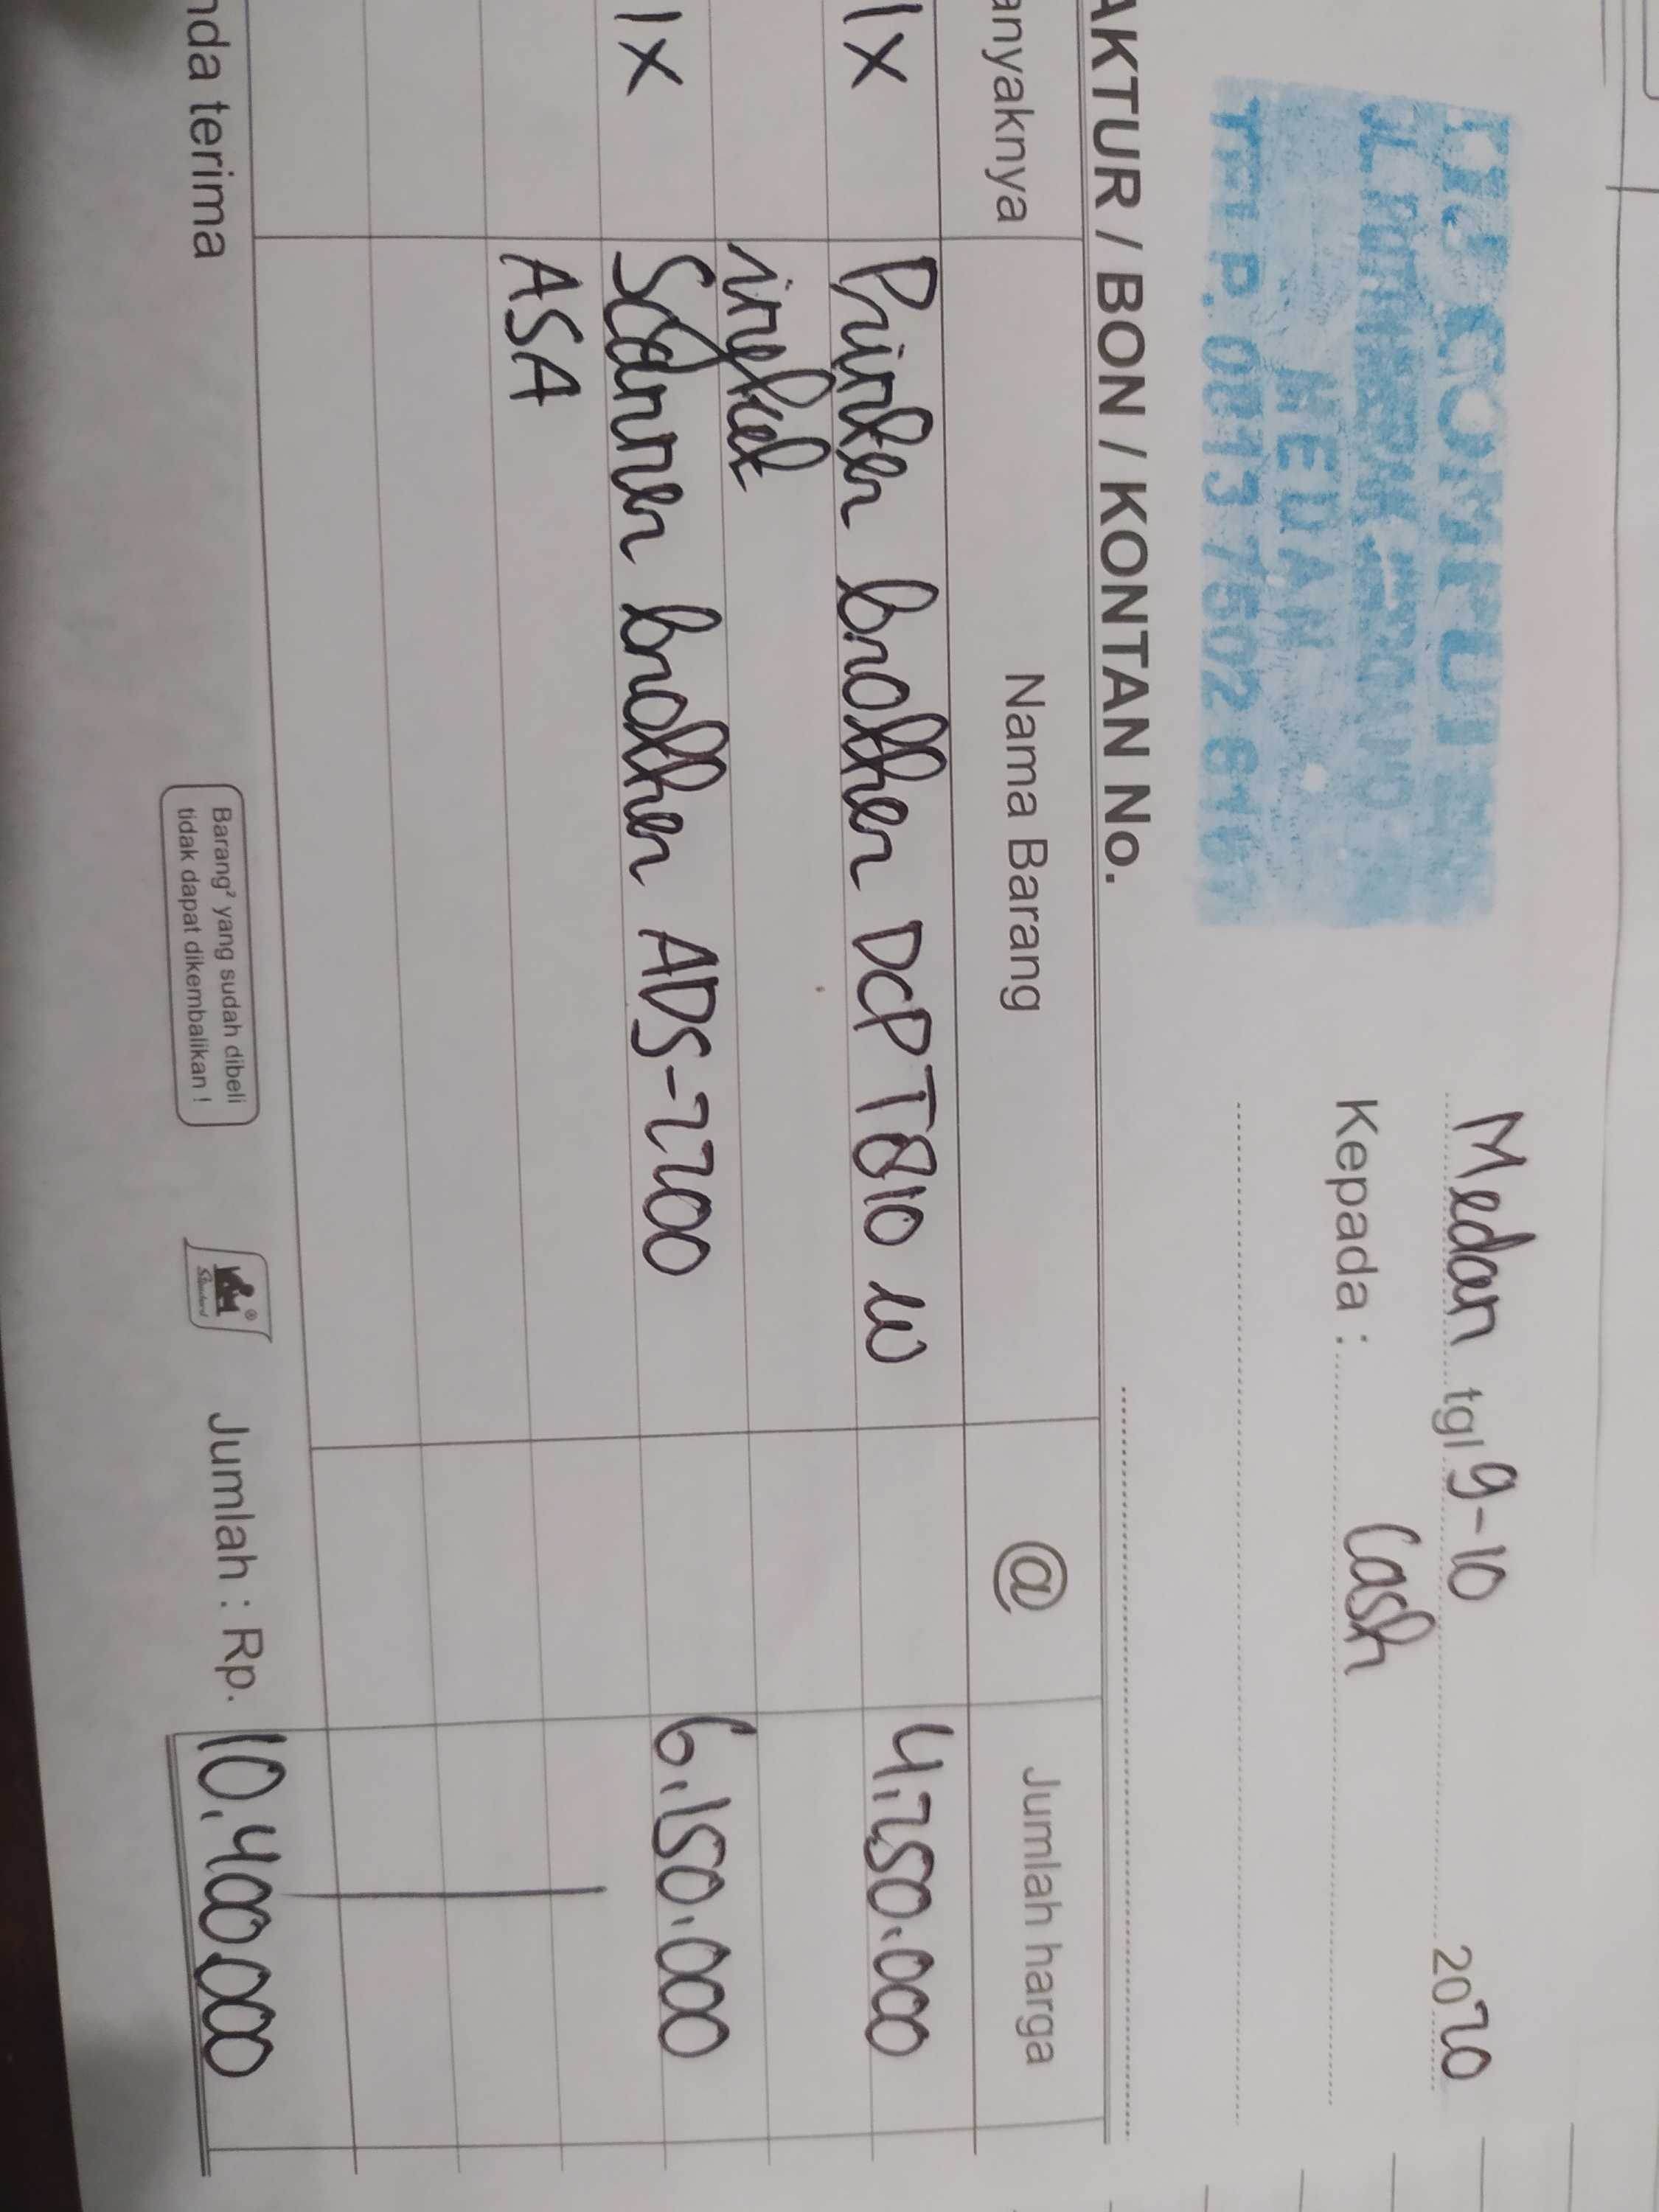 COMPUTER
MEDAN
TELP. 0813 7502 616
Medan tgl 9-10 2020
Kepada : Cash
AKTUR / BON / KONTAN No.
anyaknya Nama Barang @ Jumlah harga
1x Printer brother DCP T810 W 4.250.000
inkjet
1x Scanner brother ADS-2200 6.150.000
ASA
nda terima
Barang² yang sudah dibeli
tidak dapat dikembalikan !
Standard
Jumlah : Rp. 10.400.000